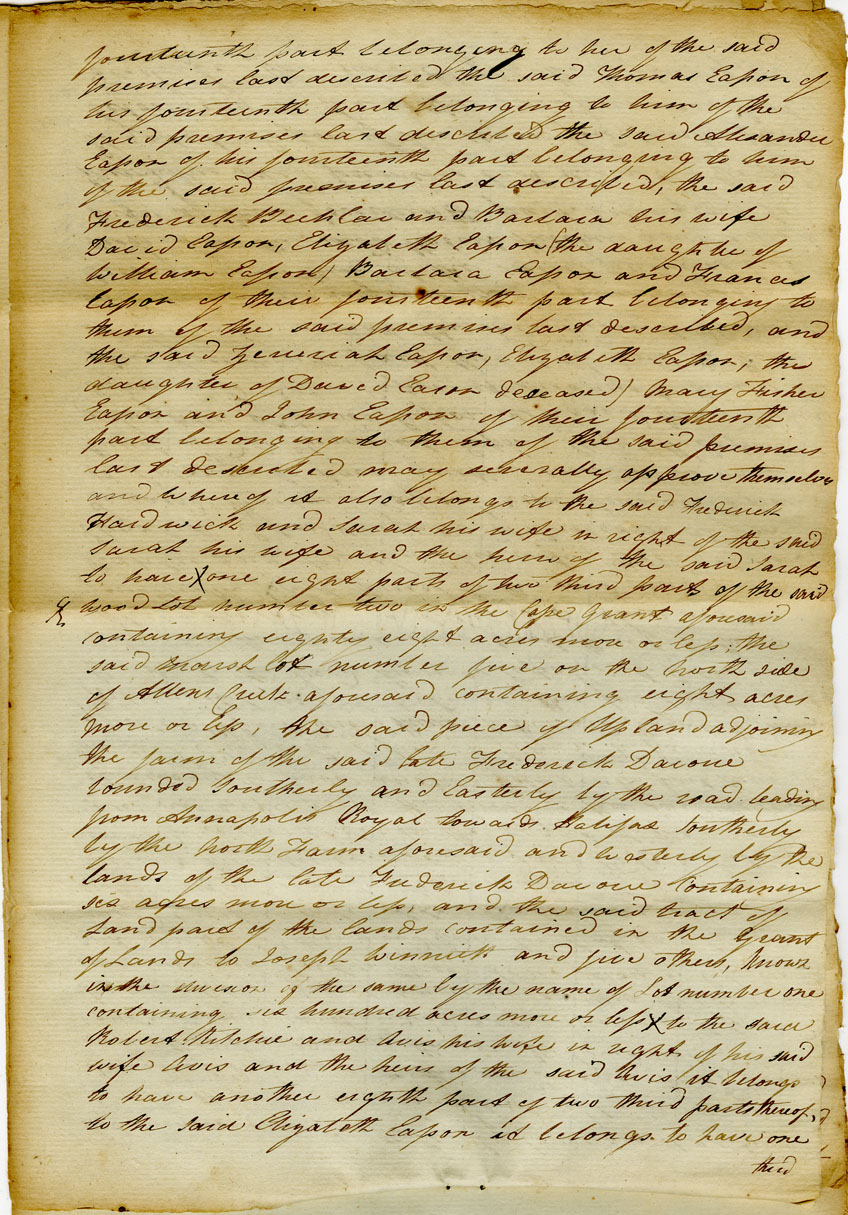 fourteenth part belonging to her of the said
premises last described the said Thomas Easson of
his fourteenth part belonging to him of the
said premises last described the said Alexander
Easson of his fourteenth part belonging to him
of the said premises last described, the said
Frederick and Barbara his wife
David Easson, Elizabeth Easson (the daughter of
William Easson) Barbara Easson and Frances
Easson of their fourteenth part belonging to
them of the said premises last described, and
the said Easson, Elizabeth Easson, the
daughter of David Eason deceased) Mary Fisher
Easson and John Easson of their fourteenth
part belonging to them of the said premises
last described may severally approve themselves
and whereof it also belongs to the said Frederick
Hardwick and Sarah his wife in right of the said
Sarah his wife and the heirs of the said Sarah
to have X one eight parts of two third part of the said
wood Lot number two in the Cape Grant aforesaid
containing eighty eight acres more or less, the
said marsh lot number five on the north side
of Allens Creek aforesaid containing eight acres
more or less, the said piece of Upland adjoining
the farm of the said late Frederick Davoue
bounded Southerly and Easterly by the road leading
from Annapolis Royal towards Halifax Southerly
by the north Farm aforesaid and westerly by the
lands of the late Frederick Davoue Containing
six acres more or less, and the said tract of
Land part of the lands contained in the Grant
of Lands to Joseph Winniett and five others, known
in the division of the same by the name of Lot number one
containing six hundred acres more or less X to the said
Robert Ritchie and Avis his wife in right of his said
wife Avis and the heirs of the said Avis it belongs
to have another eighth part of two third parts thereof,
to the said Elizabeth Easson it belongs to have one
third